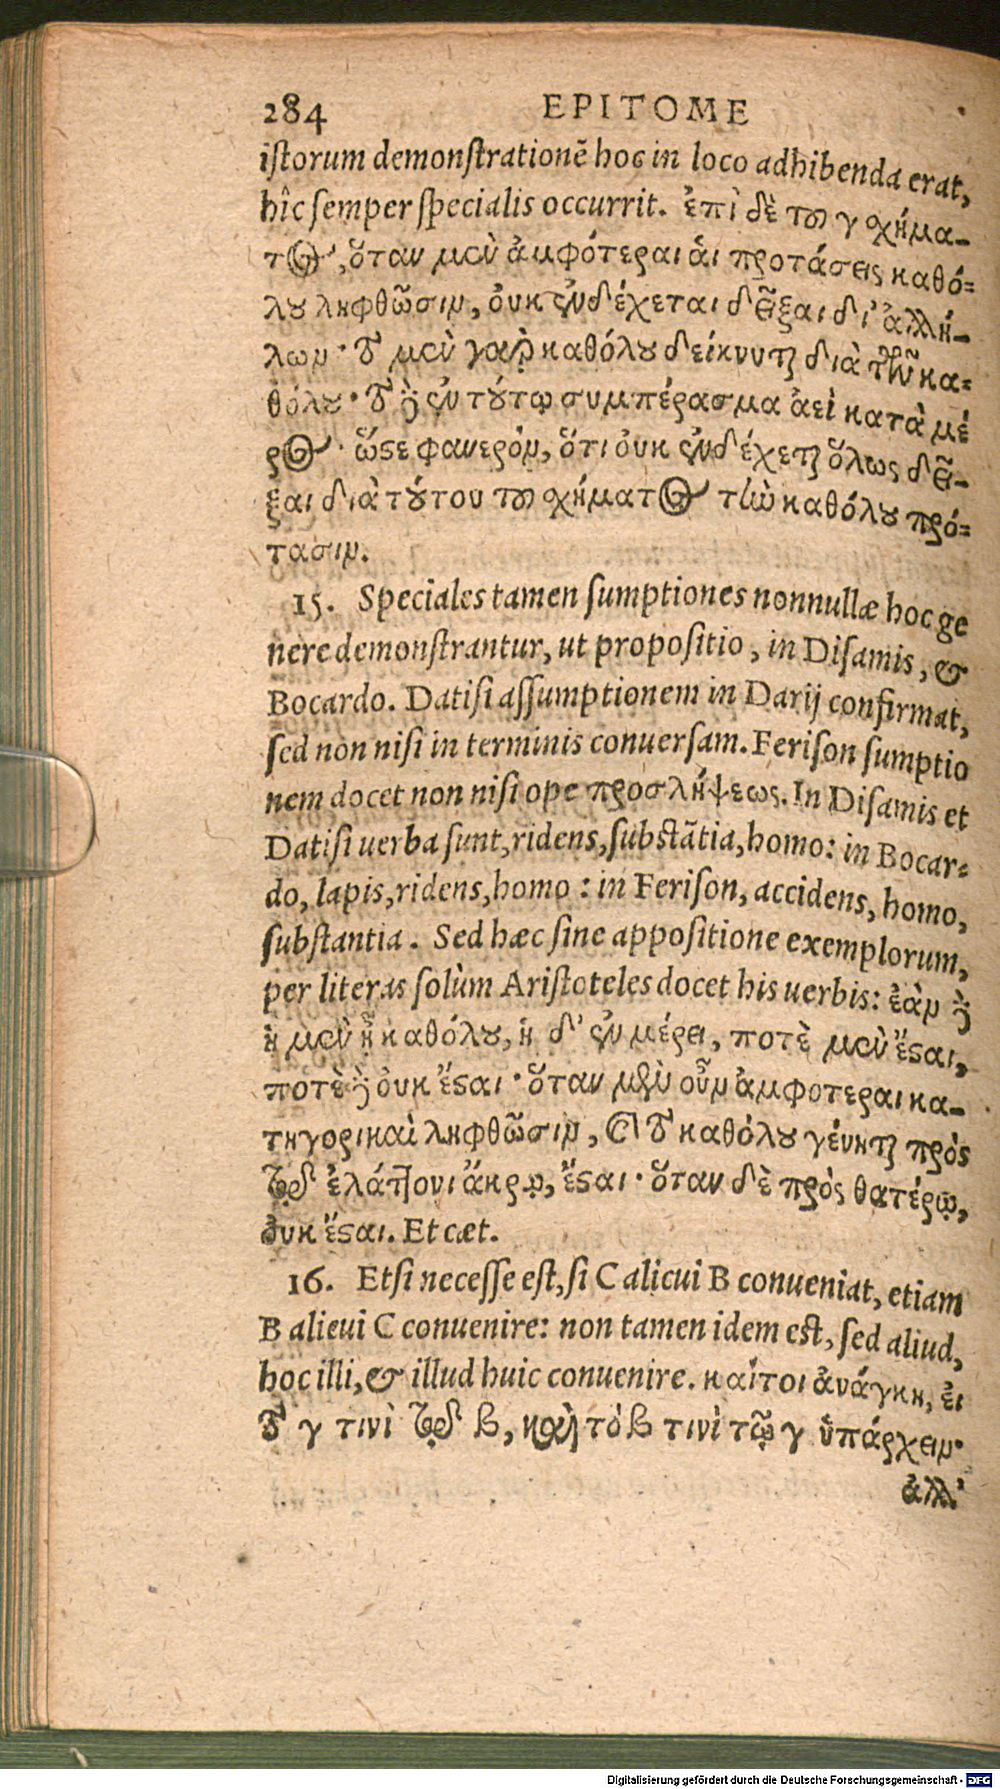 284 EPITOME
istorum demonstrationē hoc in loco adhibenda erat,
hîc semper specialis occurrit. ἐπὶ δὲ τοῦ γ σχήμα-
τος, ὅταν μὲν ἀμφότεραι ἁι προτάσεις καθό-
λου ληφθῶσιν, ὀυκ ἐνδέχεται δεῖξαι δι' ἀλλή-
λων· τὸ μὲν γὰρ καθόλου δείκνυται διὰ τῶν κα-
θόλου· τὸ δὲ ἐν τούτῳ συμπέρασμα ἀεὶ κατὰ μέ
ρος· ὥστε φανερόν, ὅτι ὀυκ ἐνδέχεται ὅλως δεῖ-
ξαι διὰ τούτου τοῦ σχήματος τὴν καθόλου πρό-
τασιν.
15. Speciales tamen sumptiones nonnullæ hoc ge
nere demonstrantur, ut propositio, in Disamis, &
Bocardo. Datisi assumptionem in Darij confirmat,
sed non nisi in terminis conuersam. Ferison sumptio
nem docet non nisi ope προσλήψεως. In Disamis et
Datisi uerba sunt, ridens, substātia, homo: in Bocar-
do, lapis, ridens, homo: in Ferison, accidens, homo,
substantia. Sed hæc sine appositione exemplorum,
per literas solùm Aristoteles docet his uerbis: ἐὰν δὲ
ἡ μὲν ᾖ καθόλου, ἡ δ' ἐν μέρει, ποτὲ μὲν ἔσται,
ποτὲ δὲ ὀυκ ἔσται· ὅταν μὲν οὖν ἀμφοτεραι κα-
τηγορικαὶ ληφθῶσιν, καὶ τὸ καθόλου γένηται πρὸς
τῷ ἐλάττονι ἄκρῳ, ἔσται· ὅταν δὲ πρὸς θατέρῳ,
ὀυκ ἔσται. Et cæt.
16. Etsi necesse est, si C alicui B conueniat, etiam
B alicui C conuenire: non tamen idem est, sed aliud,
hoc illi, & illud huic conuenire. καίτοι ἀνάγκη, ἐι
τὸ γ τινὶ τῷ β, καὶ τὸ β τινὶ τῷ γ ὑπάρχειν·
ἀλλ'
Digitalisierung gefördert durch die Deutsche Forschungsgemeinschaft - DFG